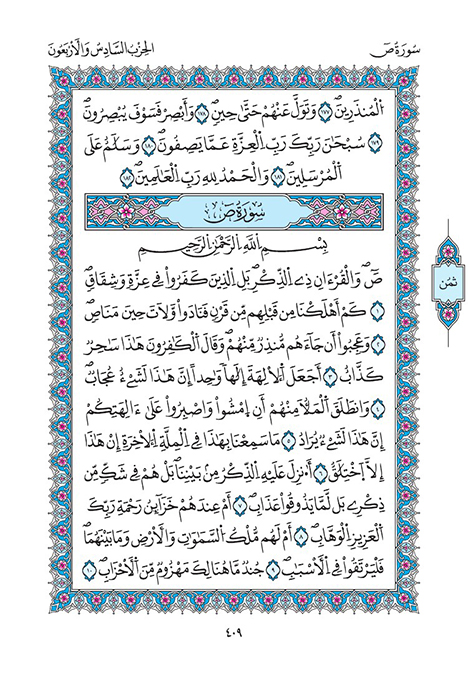 سُورَةُ صٓ
الحِزْبُ السَّادِسُ وَالأَرْبَعُونَ
اَلْمُنذَرِينَۖ ١٧٧ وَتَوَلَّ عَنْهُمْ حَتَّىٰ حِينٖۖ ١٧٨ وَأَبْصِرْ فَسَوْفَ يُبْصِرُونَۖ
١٧٩ سُبْحَٰنَ رَبِّكَ رَبِّ اِ۬لْعِزَّةِ عَمَّا يَصِفُونَۖ ١٨٠ وَسَلَٰمٌ عَلَى
اَ۬لْمُرْسَلِينَۖ ١٨١ وَالْحَمْدُ لِلهِ رَبِّ اِ۬لْعَٰلَمِينَۖ ١٨٢
سُورَةُ صٓ
بِسْمِ اِ۬للَّهِ اِ۬لرَّحْمَٰنِ اِ۬لرَّحِيمِ
صٓۖ وَالْقُرْءَانِ ذِے اِ۬لذِّكْرِۖ بَلِ اِ۬لذِينَ كَفَرُواْ فِے عِزَّةٖ وَشِقَاقٖۖ
١ كَمْ أَهْلَكْنَا مِن قَبْلِهِم مِّن قَرْنٖ فَنَادَواْ وَّلَاتَ حِينَ مَنَاصٖۖ
٢ وَعَجِبُوٓاْ أَن جَآءَهُم مُّنذِرٞ مِّنْهُمْۖ وَقَالَ اَ۬لْكَٰفِرُونَ هَٰذَا سَٰحِرٞ
كَذَّابٌۖ ٣ اَجَعَلَ اَ۬لَالِهَةَ إِلَٰهاٗ وَٰحِداًۖ اِنَّ هَٰذَا لَشَےْءٌ عُجَابٞۖ
٤ وَانطَلَقَ اَ۬لْمَلَأُ مِنْهُمُۥٓ أَنِ اِ۪مْشُواْ وَاصْبِرُواْ عَلَىٰٓ ءَالِهَتِكُمُۥٓۖ
إِنَّ هَٰذَا لَشَےْءٞ يُرَادُۖ ٥ مَا سَمِعْنَا بِهَٰذَا فِے اِ۬لْمِلَّةِ اِ۬لَاخِرَةِ إِنْ هَٰذَآ
إِلَّا اَ۪خْتِلَٰقٌۖ ٦ اَ۟نزِلَ عَلَيْهِ اِ۬لذِّكْرُ مِنۢ بَيْنِنَاۖ بَلْ هُمْ فِے شَكّٖ مِّن
ذِكْرِےۖ بَل لَّمَّا يَذُوقُواْ عَذَابِۖ ٧ أَمْ عِندَهُمْ خَزَآئِنُ رَحْمَةِ رَبِّكَ
اَ۬لْعَزِيزِ اِ۬لْوَهَّابِۖ ٨ أَمْ لَهُم مُّلْكُ اُ۬لسَّمَٰوَٰتِ وَالَارْضِ وَمَا بَيْنَهُمَاۖ
فَلْيَرْتَقُواْ فِے اِ۬لَاسْبَٰبِۖ ٩ جُندٞ مَّا هُنَالِكَ مَهْزُومٞ مِّنَ اَ۬لَاحْزَابِۖ ١٠
ثُمُن
٤٠٩